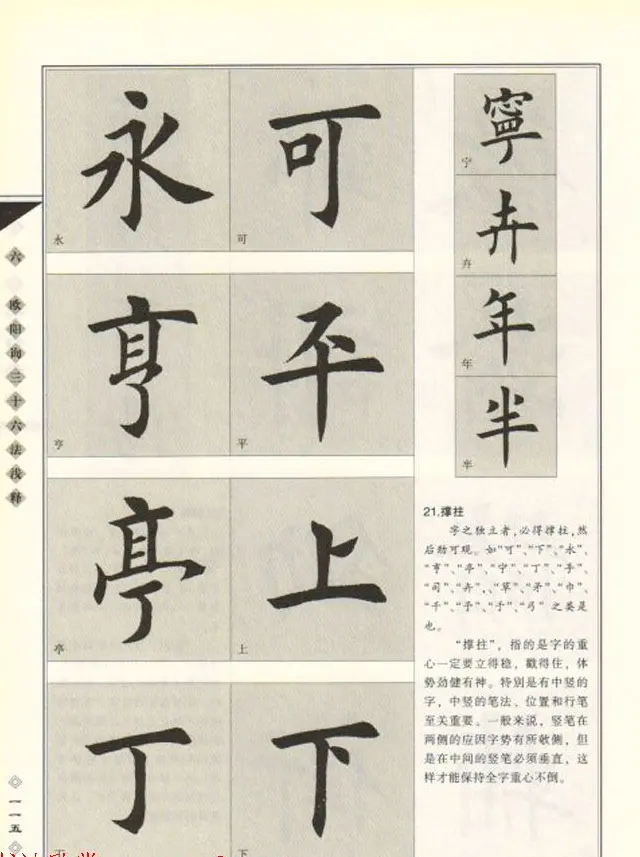 六
欧阳询三十六法浅释
一一五
永
永
可
可
亨
亨
平
平
亭
亭
上
上
丁
丁
下
下
寧
宁
卉
卉
年
年
半
半
21.撑拄
字之独立者,必得撑拄,然
后劲可观。如“可”、“下”、“永”、
“亨”、“亭”、“宁”、“丁”、“手”、
“司”、“卉”,、“草”、“矛”、“巾”、
“千”、“予”、“于”、“弓”之类是
也。
“撑拄”,指的是字的重
心一定要立得稳,戳得住,体
势劲健有神。特别是有中竖的
字,中竖的笔法、位置和行笔
至关重要。一般来说,竖笔在
两侧的应因字势有所欹侧,但
是在中间的竖笔必须垂直,这
样才能保持全字重心不倒。